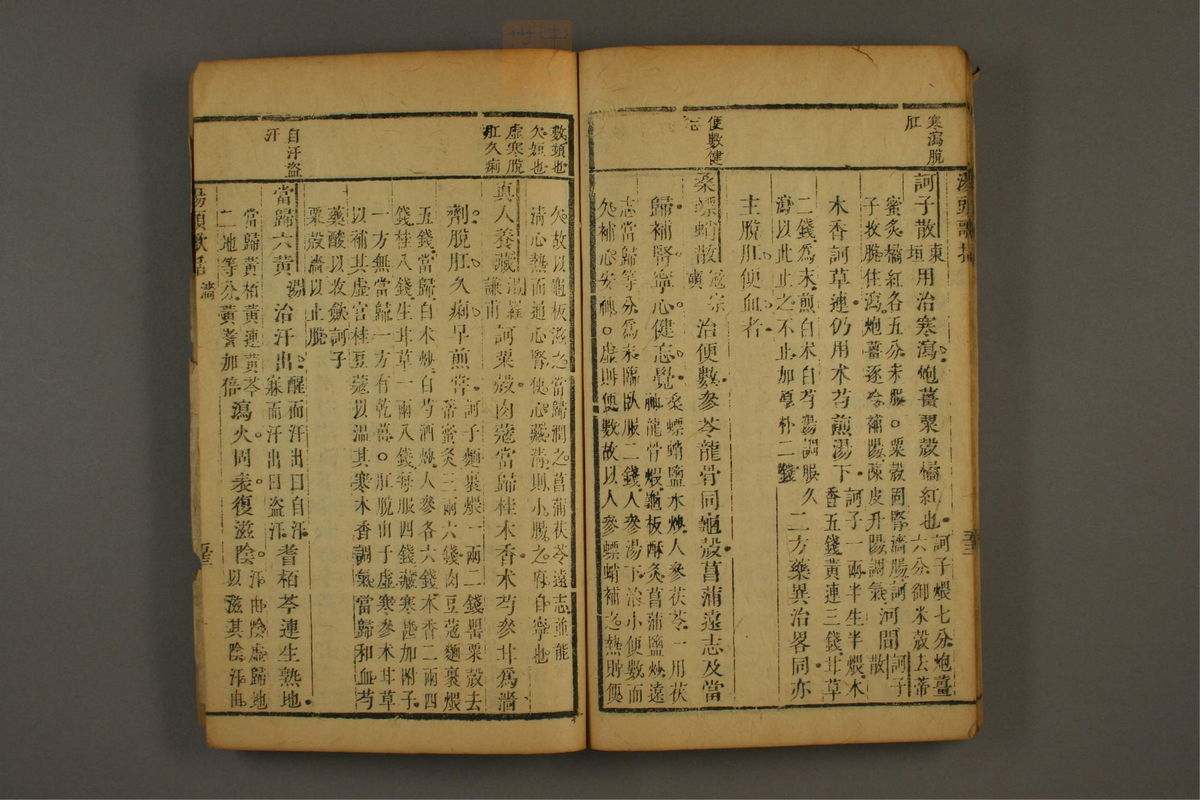 湯頭歌括
五三
寒瀉脫
肛
訶子散東垣用治寒瀉炮薑粟殼橘紅也訶子煨七分炮薑六分御米殼去蒂
蜜炙橘紅各五分末服○粟殼固腎濇腸訶
子收脫住瀉炮薑逐冷補陽陳皮升陽調氣河間訶子散
木香訶草連仍用朮芍煎湯下訶子一兩半生半煨木香五錢黃連三錢甘草
二錢為末煎白朮白芍湯調服久
瀉以此止之不止加厚朴二錢二方藥異治畧同亦
主脫肛便血者
便數健
忘
桑螵蛸散寇宗奭治便數參苓龍骨同龜殼菖蒲遠志及當
歸補腎寧心健忘覺桑螵蛸鹽水炒人參茯苓一用茯神龍骨煅龜板酥炙菖蒲鹽炒遠
志當歸等分為末臨臥服二錢人參湯下治小便數而
欠補心安神○虛則便數故以人參螵蛸補之熱則便
數頻也
欠短也
虛寒脫
肛久痢
欠故以龜板滋之當歸潤之菖蒲茯苓遠志並能
清心熱而通心腎使心臟清則小腸之府自寧也
真人養臟湯羅謙甫訶粟殼肉蔻當歸桂木香朮芍參甘為濇
劑脫肛久痢早煎嘗訶子麵裹煨一兩二錢罌粟殼去蒂蜜炙三兩六錢肉豆蔻麵裹煨
五錢當歸白朮炒白芍酒炒人參各六錢木香二兩四
錢桂八錢生甘草一兩八錢每服四錢臟寒甚加附子
一方無當歸一方有乾薑○肛脫由于虛寒參朮甘草
以補其虛官桂豆蔻以溫其寒木香調氣當歸和血芍
藥酸以收斂訶子
粟殼濇以止脫
自汗盜
汗
當歸六黃湯治汗出醒而汗出曰自汗寐而汗出曰盜汗耆栢芩連生熟地
當歸黃栢黃連黃芩
二地等分黃耆加倍瀉火固表復滋陰汗由陰虛歸地以滋其陰汗由
湯頭歌括　濇
五三